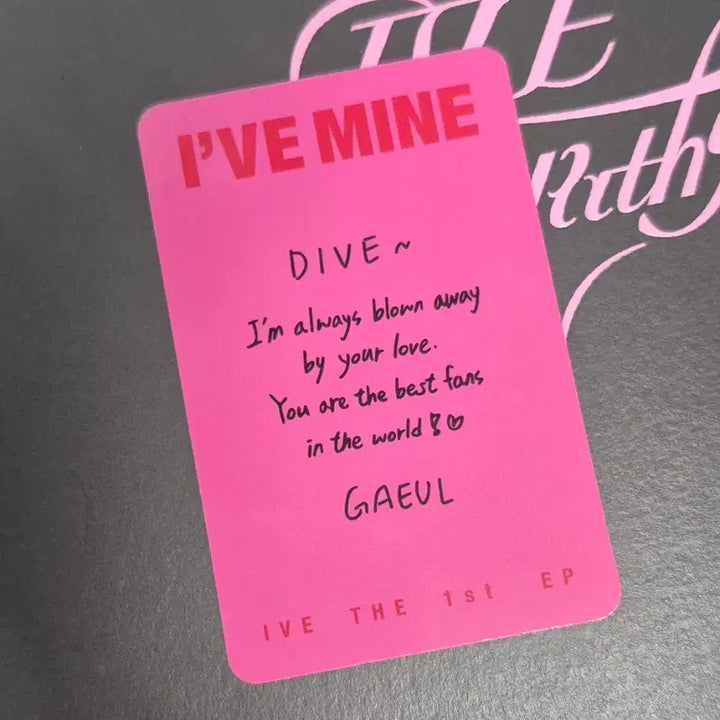 I'VE MINE
DIVE ~
I'm always blown away
by your love.
You are the best fans
in the world ! ♡
GAEUL
IVE THE 1st EP